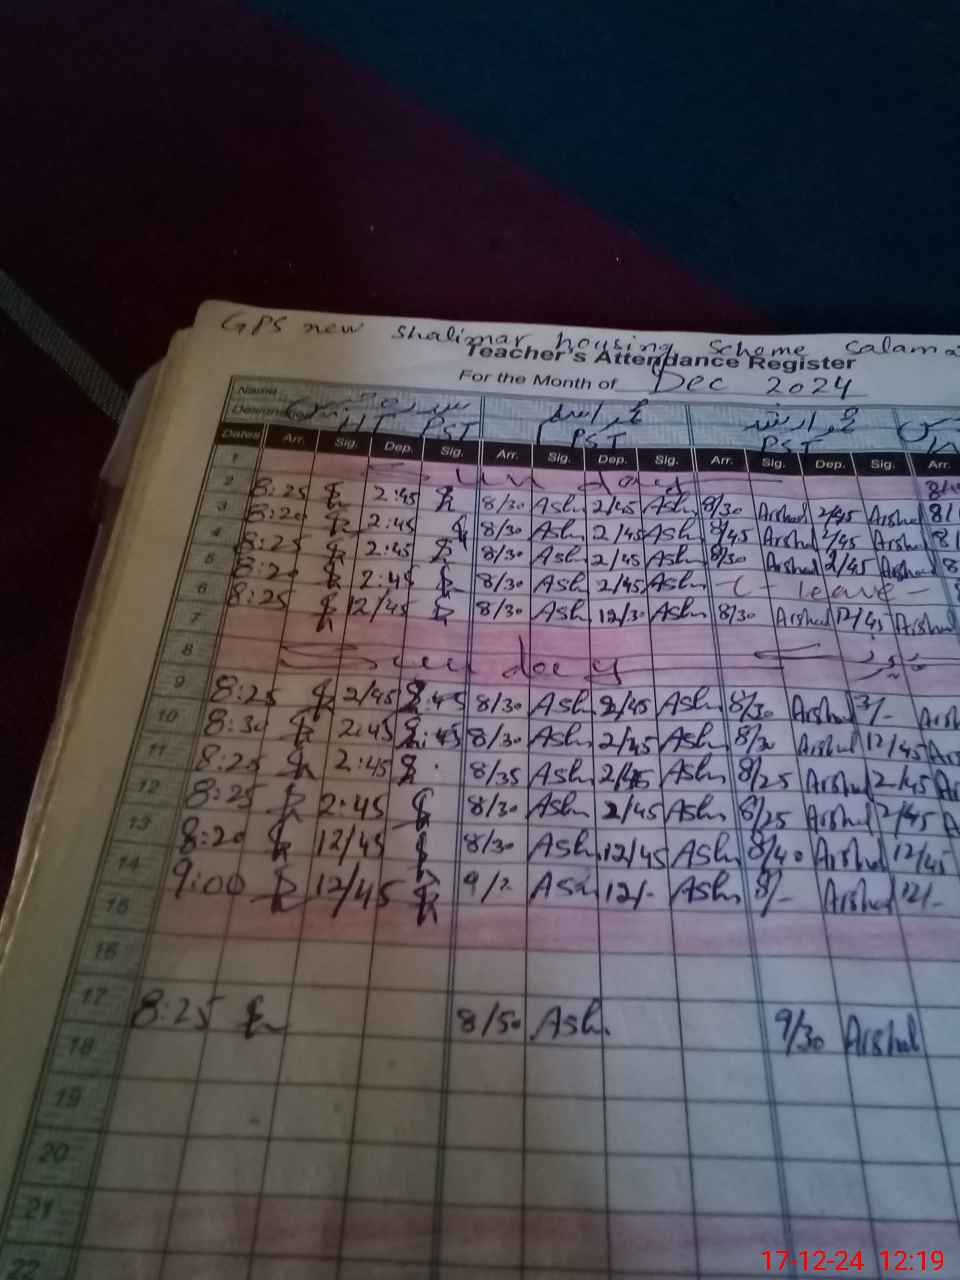 GPS new Shalimar housing Scheme Calama
Teacher's Attendance Register
For the Month of Dec 2024
Name
Designation HT PST PST PST
Dates Arr. Sig. Dep. Sig. Arr. Sig. Dep. Sig. Arr. Sig. Dep. Sig. Arr.
1 Sunday
2 8:25 2:45 8/30 Ash 2/45 Ash 8/30 Arshad 2/45 Arshad
3 8:20 2:45 8/30 Ash 2/45 Ash 8/45 Arshad 2/45 Arshad
4 8:25 2:45 8/30 Ash 2/45 Ash 8/30 Arshad 2/45 Arshad
5 8:20 2:45 8/30 Ash 2/45 Ash - leave -
6 8:25 12/45 8/30 Ash 12/30 Ash 8/30 Arshad 12/45 Arshad
7
8 Sunday
9 8:25 2/45 8/30 Ash 2/45 Ash 8/30 Arshad 3/-
10 8:30 2:45 8/30 Ash 2/45 Ash 8/30 Arshad 12/45
11 8:25 2:45 8/35 Ash 2/45 Ash 8/25 Arshad 2/45
12 8:25 2:45 8/30 Ash 2/45 Ash 8/25 Arshad 2/45
13 8:20 12/45 8/30 Ash 12/45 Ash 8/40 Arshad 12/45
14 9:00 12/45 Ash 12/- Ash 8/- Arshad 12/-
15
16
17 8:25 8/50 Ash 9/30 Arshad
18
19
20
21
22
17-12-24 12:19